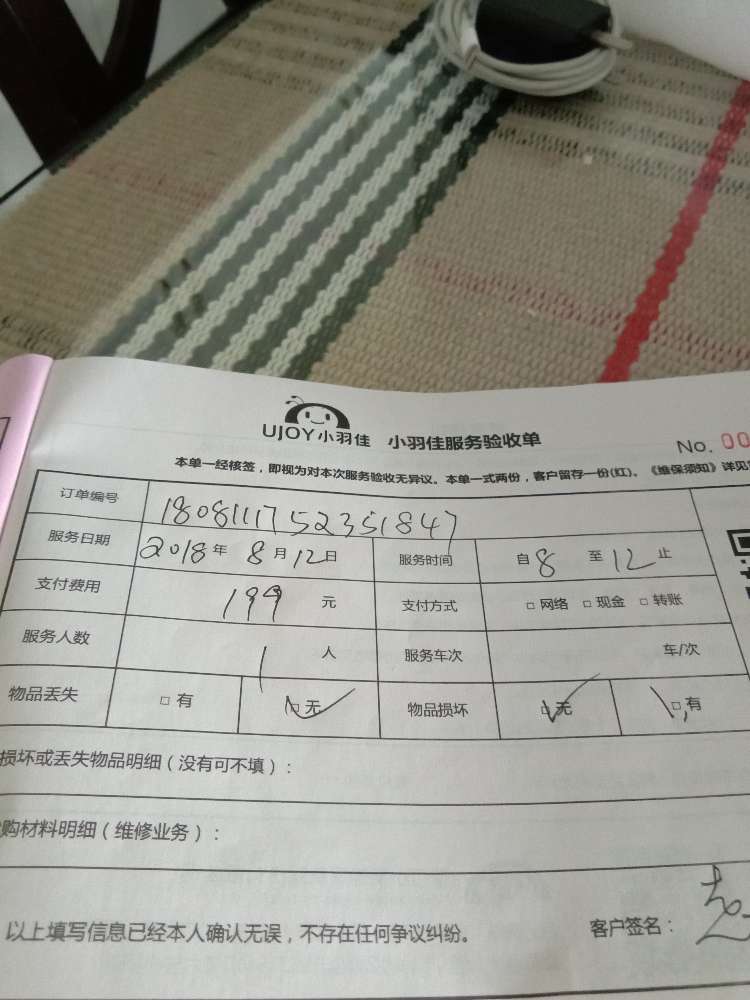 UJOY小羽佳 小羽佳服务验收单
No. 00
本单一经核签，即视为对本次服务验收无异议。本单一式两份，客户留存一份(红)、《维保须知》详见
订单编号 1808111752351847
服务日期 2018年 8月12日 服务时间 自8 至12止
支付费用 199 元 支付方式 □网络 □现金 □转账
服务人数 1 人 服务车次 车/次
物品丢失 □有 □无 物品损坏 □无 □有
损坏或丢失物品明细（没有可不填）：
购材料明细（维修业务）：
以上填写信息已经本人确认无误，不存在任何争议纠纷。 客户签名：